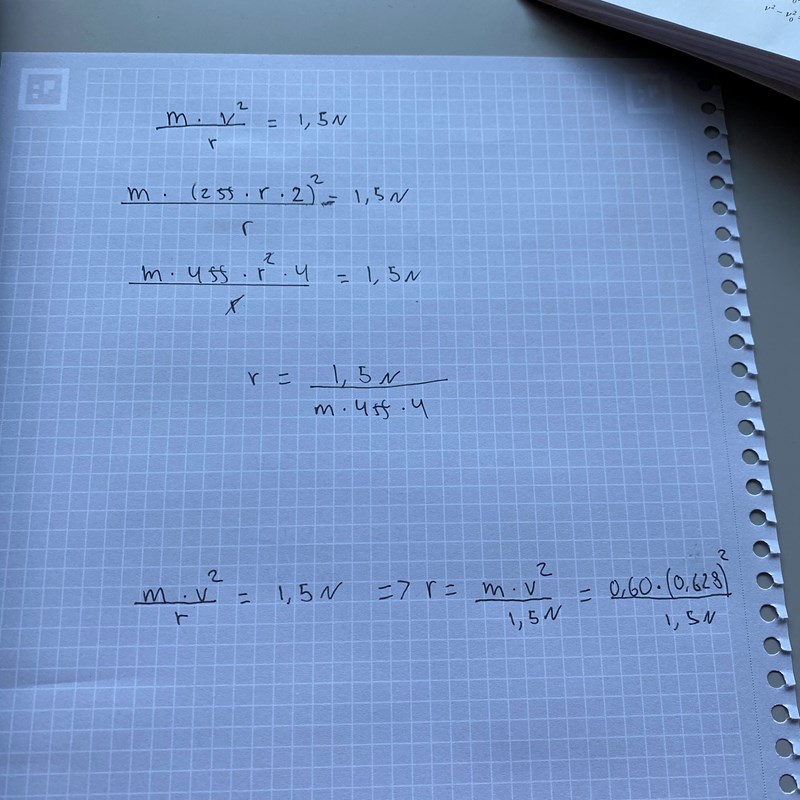 v² - v₀²
m · v² / r = 1,5N
m · (2π · r · 2)² / r = 1,5N
m · 4π · r² · 4 / r = 1,5N
r = 1,5N / m · 4π · 4
m · v² / r = 1,5N => r = m · v² / 1,5N = 0,60 · (0,628)² / 1,5N